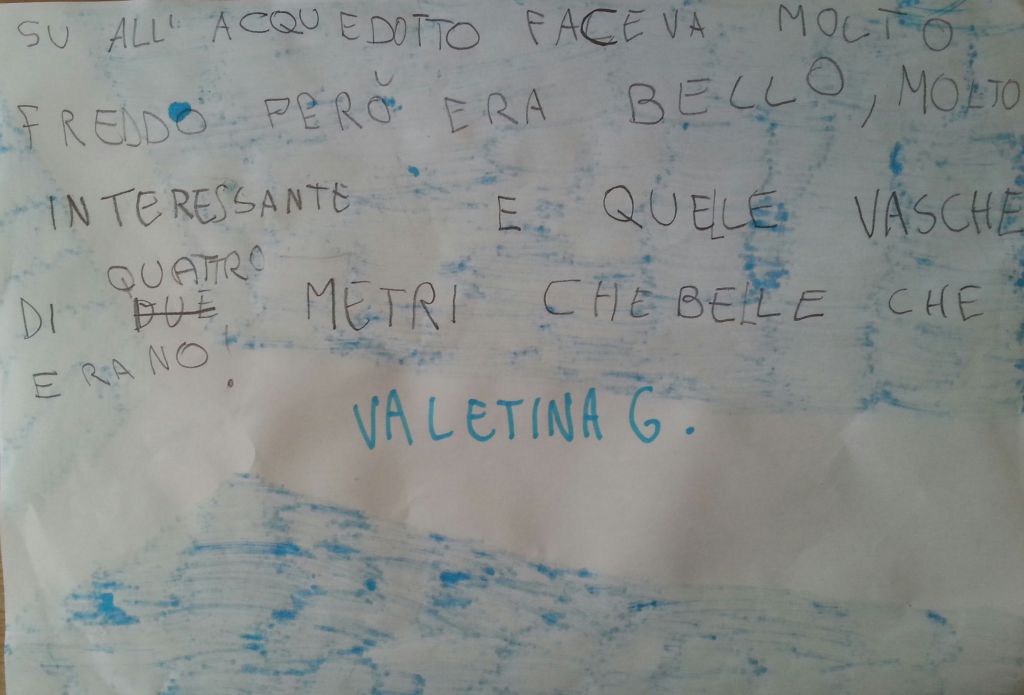 SU ALL' ACQUEDOTTO FACEVA MOLTO
FREDDO PERŎ ERA BELLO, MOLTO
INTERESSANTE E QUELLE VASCHE
QUATTRO
DI ~~DUE~~ METRI CHE BELLE CHE
ERANO.
VALETINA G.